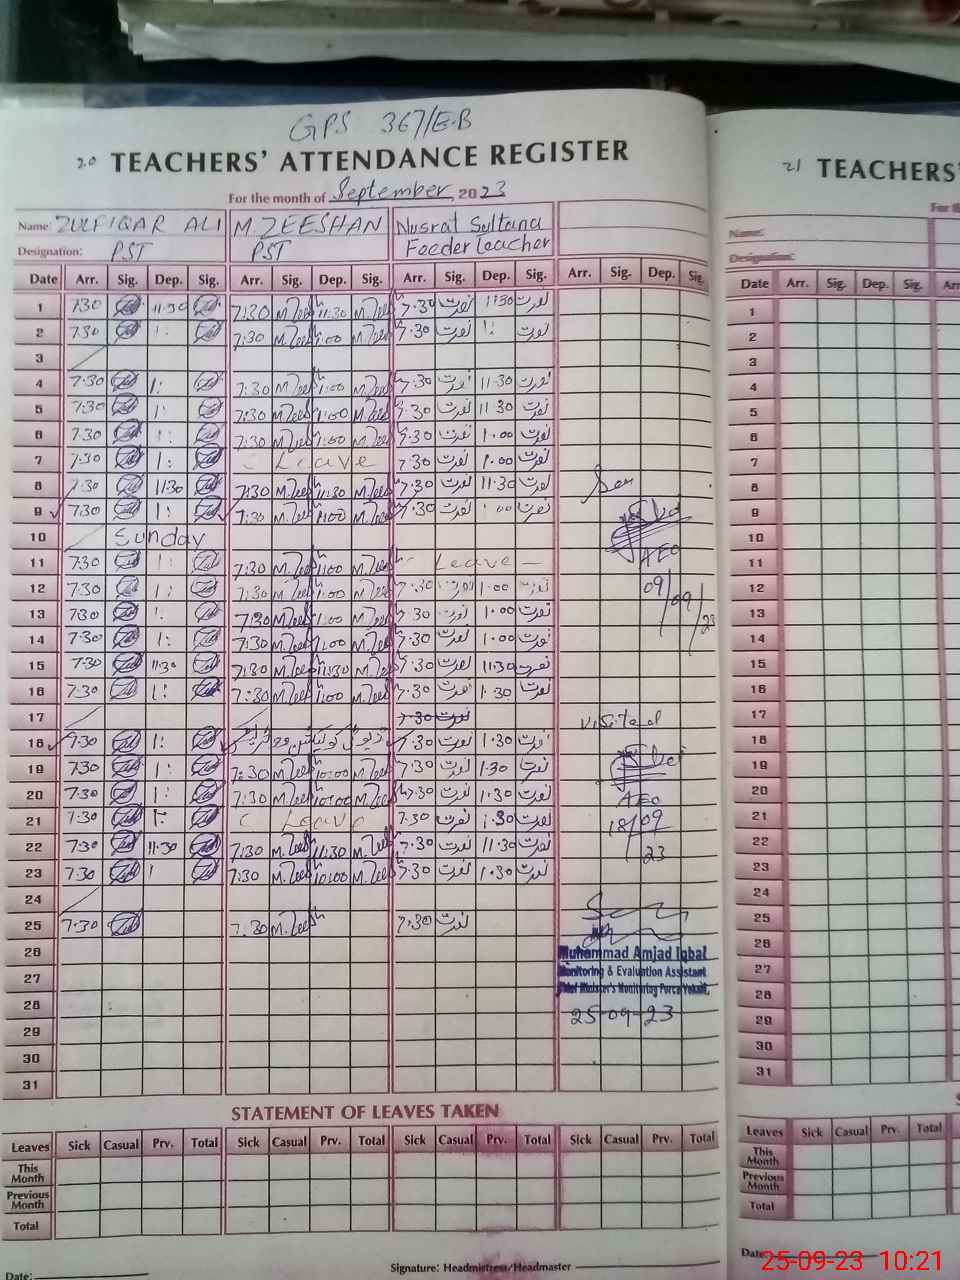 GPS 367/E.B
20 TEACHERS' ATTENDANCE REGISTER
For the month of September, 2023
Name: ZULFIQAR ALI M ZEESHAN Nusrat Sultana
Designation: PST PST Feeder teacher
Date Arr. Sig. Dep. Sig. Arr. Sig. Dep. Sig. Arr. Sig. Dep. Sig. Arr. Sig. Dep. Sig.
1 7:30 11:30 7:30 M.Zee 11:30 M.Zee 7:30 نصرت 11:30 نصرت
2 7:30 1: 7:30 M.Zee 1:00 M.Zee 7:30 نصرت 1: نصرت
3
4 7:30 1: 7:30 M.Zee 1:00 M.Zee 7:30 نصرت 11:30 نصرت
5 7:30 1: 7:30 M.Zee 1:00 M.Zee 7:30 نصرت 11:30 نصرت
6 7:30 1: 7:30 M.Zee 1:00 M.Zee 7:30 نصرت 1:00 نصرت
7 7:30 1: Leave 7:30 نصرت 1:00 نصرت
8 7:30 11:30 7:30 M.Zee 11:30 M.Zee 7:30 نصرت 11:30 نصرت
9 7:30 1: 7:30 M.Zee 1:00 M.Zee 7:30 نصرت 1:00 نصرت
10 Sunday
AEO
11 7:30 1: 7:30 M.Zee 1:00 M.Zee Leave
12 7:30 1: 7:30 M.Zee 1:00 M.Zee 7:30 نصرت 1:00 نصرت
09/09/23
13 7:30 1: 7:30 M.Zee 1:00 M.Zee 7:30 نصرت 1:00 نصرت
14 7:30 1: 7:30 M.Zee 1:00 M.Zee 7:30 نصرت 1:00 نصرت
15 7:30 11:30 7:30 M.Zee 11:30 M.Zee 7:30 نصرت 11:30 نصرت
16 7:30 1: 7:30 M.Zee 1:00 M.Zee 7:30 نصرت 1:30 نصرت
17 7:30 نصرت
Visited
18 7:30 1: ڈیوٹی 7:30 نصرت 1:30 نصرت
19 7:30 1: 7:30 M.Zee 10:00 M.Zee 7:30 نصرت 1:30 نصرت
20 7:30 1: 7:30 M.Zee 10:00 M.Zee 7:30 نصرت 1:30 نصرت
AEO
21 7:30 1: Leave 7:30 نصرت 1:30 نصرت
18/09/23
22 7:30 11:30 7:30 M.Zee 11:30 M.Zee 7:30 نصرت 11:30 نصرت
23 7:30 1 7:30 M.Zee 10:00 M.Zee 7:30 نصرت 1:30 نصرت
24
25 7:30 7:30 M.Zee 7:30 نصرت
26
Muhammad Amjad Iqbal
27
Monitoring & Evaluation Assistant
Chief Minister's Monitoring Force
28
25-09-23
29
30
31
STATEMENT OF LEAVES TAKEN
Leaves Sick Casual Prv. Total Sick Casual Prv. Total Sick Casual Prv. Total Sick Casual Prv. Total
This Month
Previous Month
Total
Date:
Signature: Headmistress/Headmaster
21 TEACHERS'
For th
Name:
Designation:
Date Arr. Sig. Dep. Sig. Arr
1
2
3
4
5
6
7
8
9
10
11
12
13
14
15
16
17
18
19
20
21
22
23
24
25
26
27
28
29
30
31
S
Leaves Sick Casual Prv. Total
This Month
Previous Month
Total
Date:
25-09-23 10:21